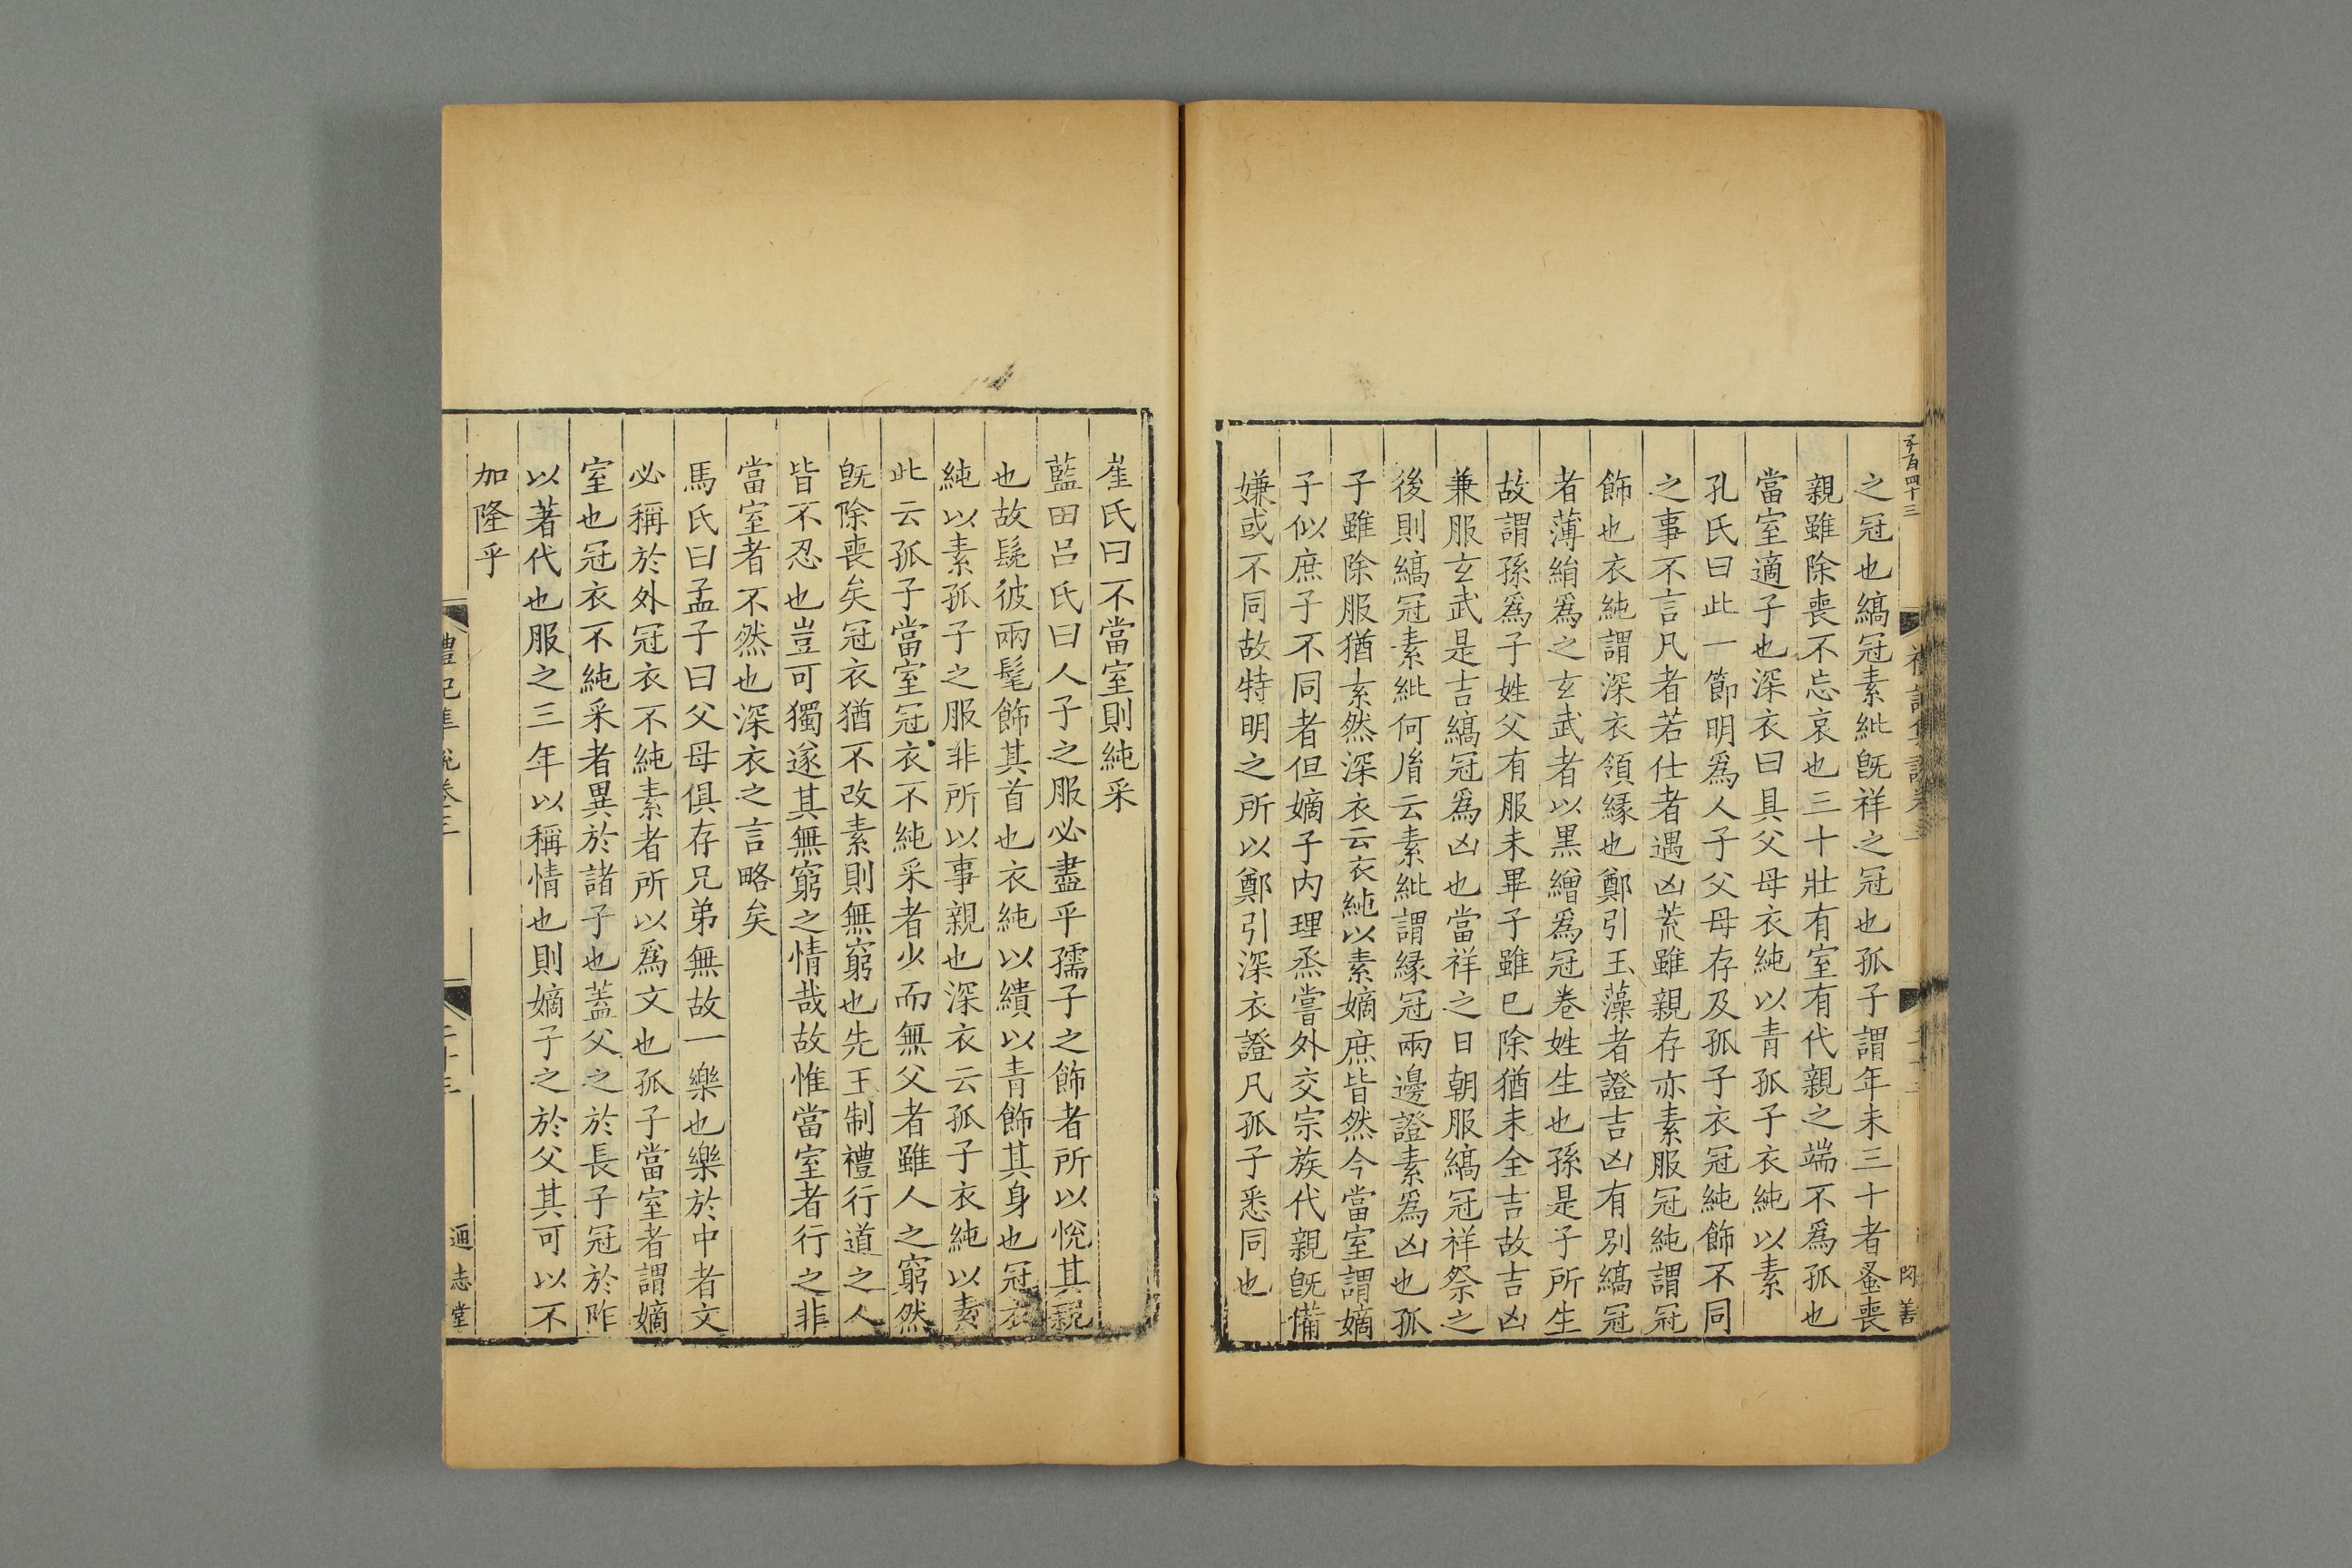 之冠也縞冠素紕旣祥之冠也孤子謂年未三十者蚤喪
親雖除喪不忘哀也三十壯有室有代親之端不爲孤也
當室適子也深衣曰具父母衣純以青孤子衣純以素
孔氏曰此一節明爲人子父母存及孤子衣冠純飾不同
之事不言凡者若仕者遇凶荒雖親存亦素服冠純謂冠
飾也衣純謂深衣領緣也鄭引玉藻者證吉凶有別縞冠
者薄絹爲之玄武者以黑繒爲冠卷姓生也孫是子所生
故謂孫爲子姓父有服未畢子雖已除猶未全吉故吉凶
兼服玄武是吉縞冠爲凶也當祥之日朝服縞冠祥祭之
後則縞冠素紕何胤云素紕謂緣冠兩邊證素爲凶也孤
子雖除服猶素然深衣云衣純以素嫡庶皆然今當室謂嫡
子似庶子不同者但嫡子内理烝嘗外交宗族代親旣備
嫌或不同故特明之所以鄭引深衣證凡孤子悉同也
崔氏曰不當室則純采
藍田呂氏曰人子之服必盡乎孺子之飾者所以悅其親
也故髧彼兩髦飾其首也衣純以繢以青飾其身也冠衣
純以素孤子之服非所以事親也深衣云孤子衣純以素
此云孤子當室冠衣不純采者少而無父者雖人之窮然
旣除喪矣冠衣猶不改素則無窮也先王制禮行道之人
皆不忍也豈可獨遂其無窮之情哉故惟當室者行之非
當室者不然也深衣之言略矣
馬氏曰孟子曰父母俱存兄弟無故一樂也樂於中者文
必稱於外冠衣不純素者所以爲文也孤子當室者謂嫡
室也冠衣不純采者異於諸子也蓋父之於長子冠於阼
以著代也服之三年以稱情也則嫡子之於父其可以不
加隆乎
通志堂